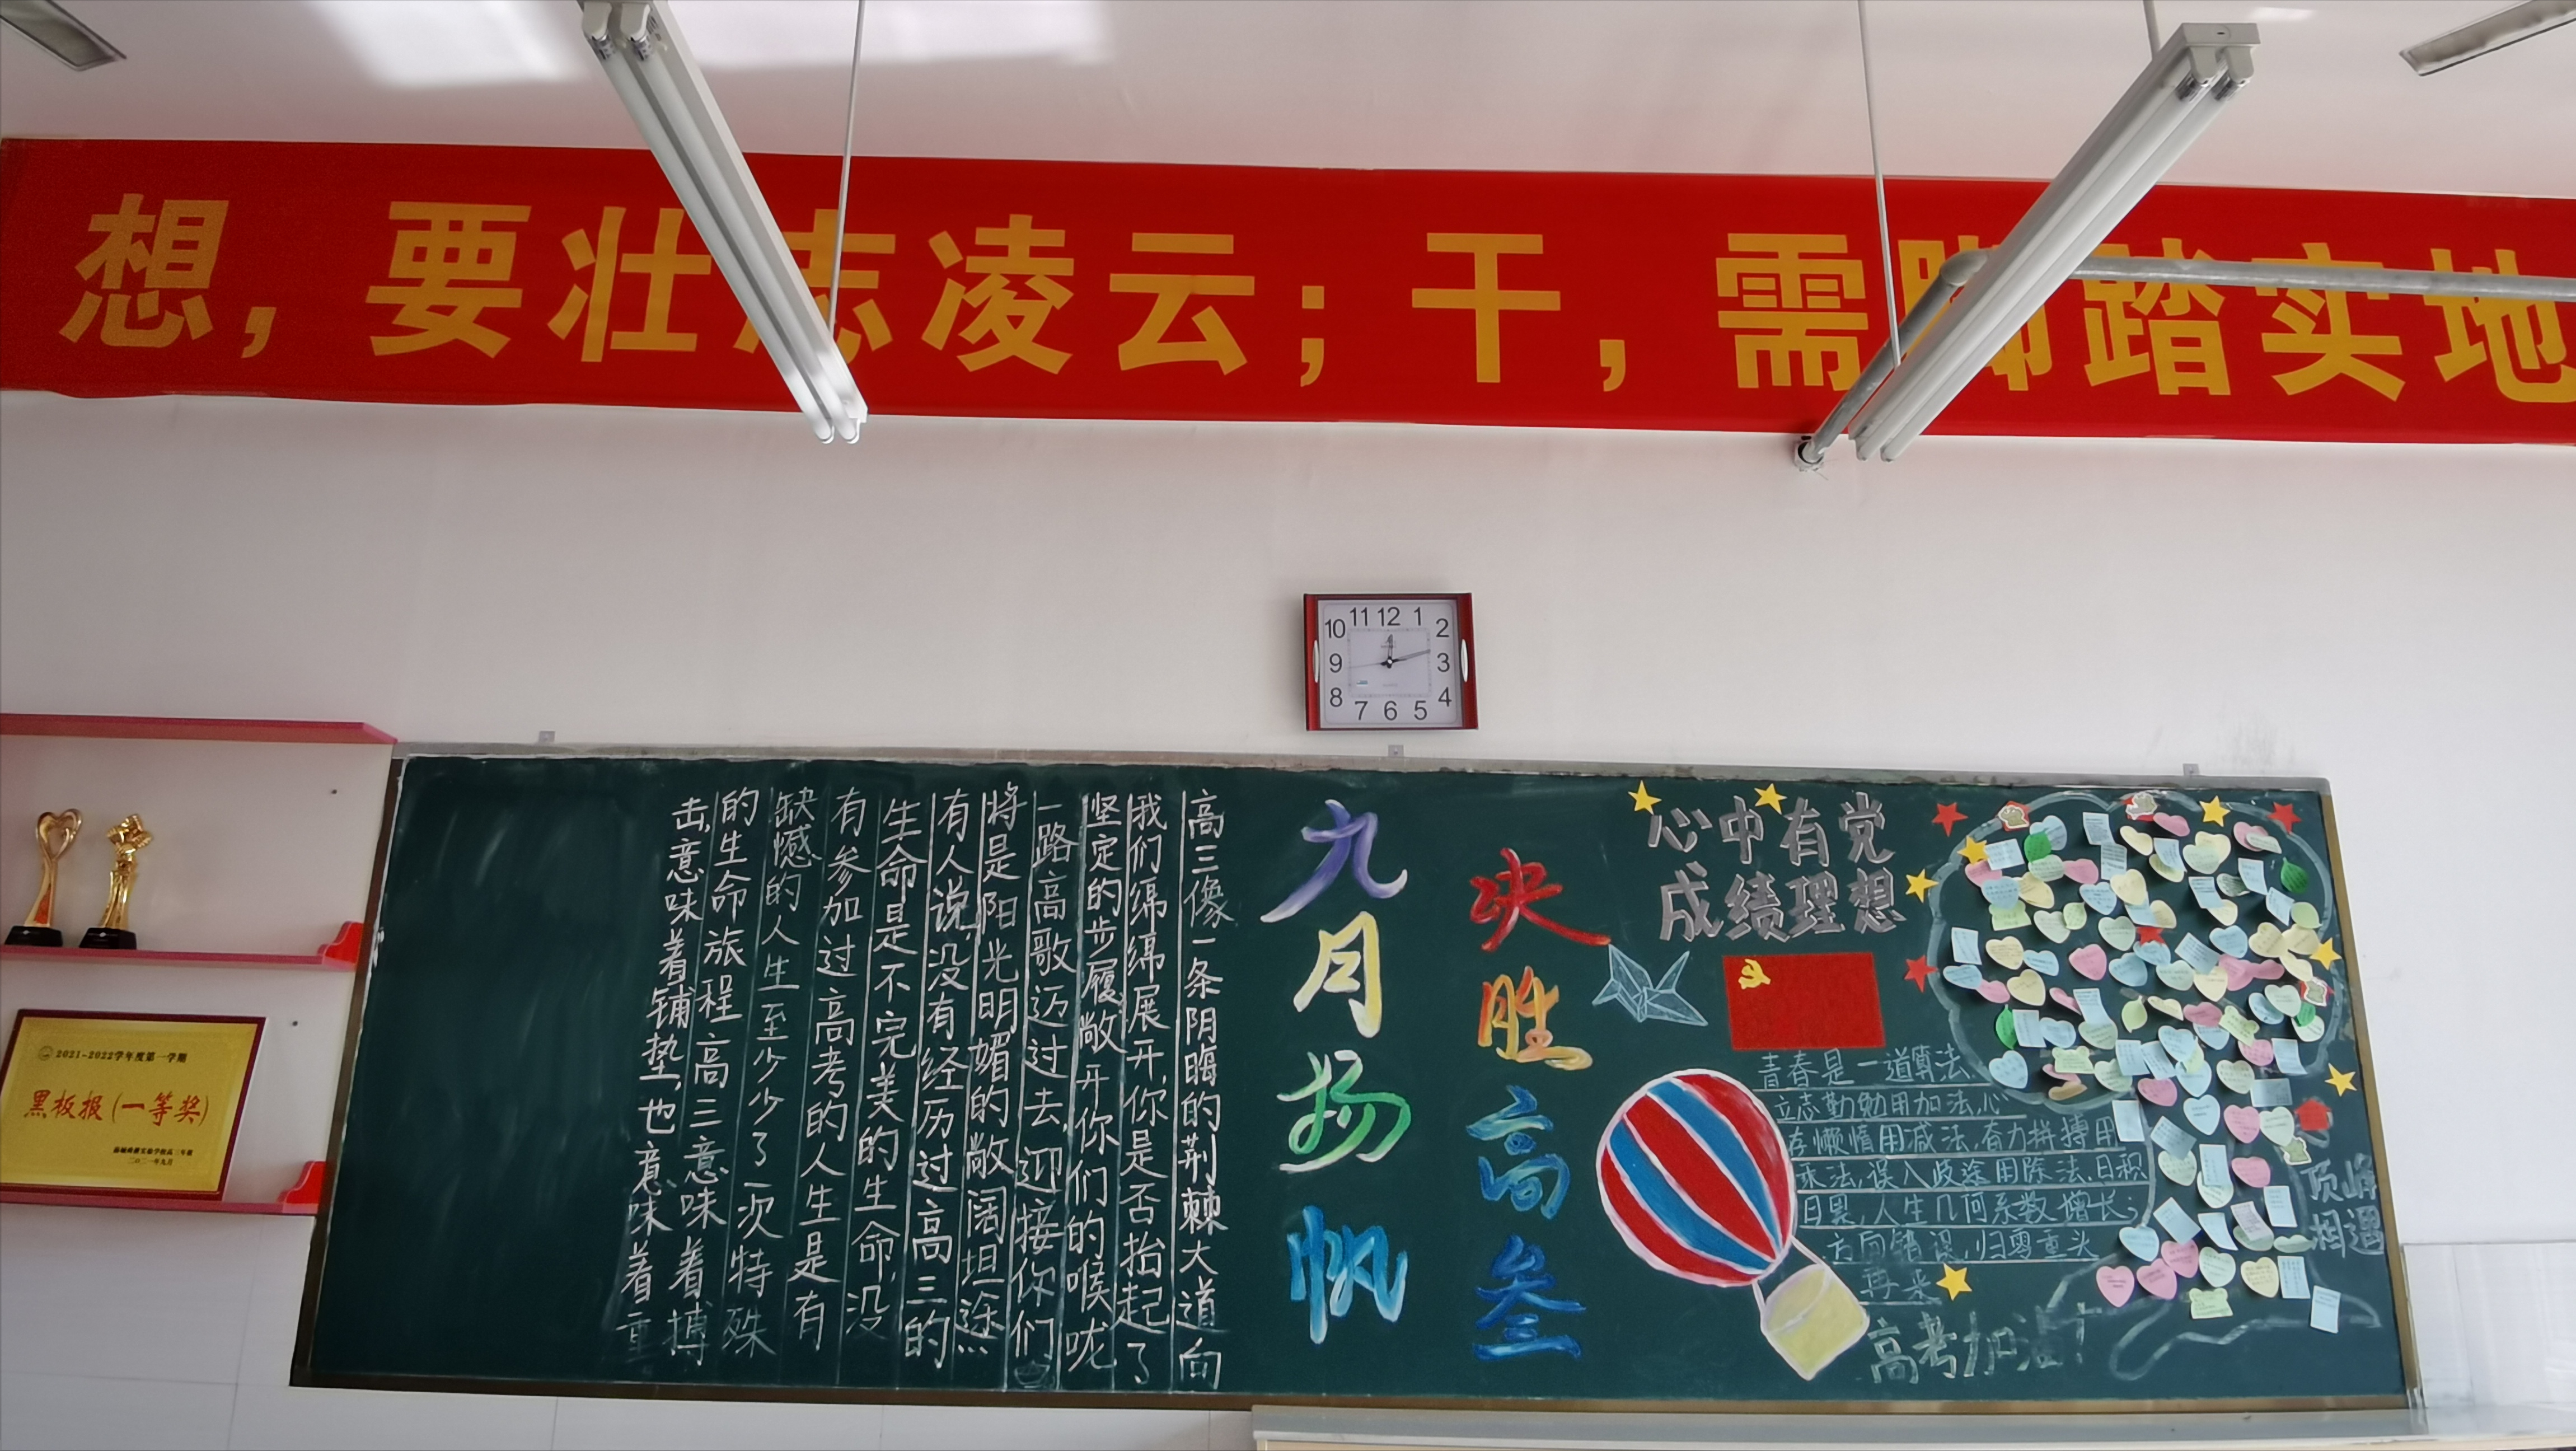 想，要壮志凌云；干，需脚踏实地
11 12 1
10 2
9 3
8 4
7 6 5
2021-2022学年度第一学期
黑板报(一等奖)
二〇二一年九月
高三像一条阴晦的荆棘大道向
我们绵绵展开,你是否抬起了
坚定的步履敞开你们的喉咙
一路高歌迈过去,迎接你们
将是阳光明媚的敞阔坦途
有人说,没有经历过高三的
生命是不完美的生命,没
有参加过高考的人生是有
缺憾的人生至少少了一次特殊
的生命旅程高三意味着搏
击,意味着铺垫,也意味着重
九月扬帆
决胜高叁
心中有党
成绩理想
青春是一道算法,
立志勤勉用加法,心
存懒惰用减法,奋力拼搏用
乘法,误入歧途用除法,日积
月累,人生几何系数增长;
方向错误,归零重头
再来
高考加油!
顶峰
相遇